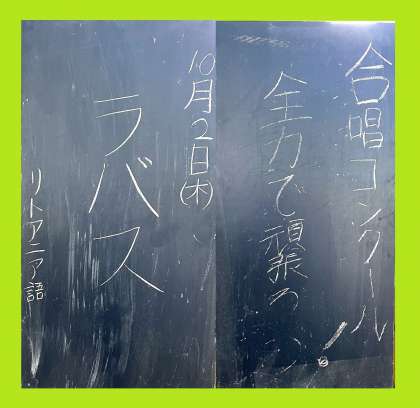 合唱コンクール
全力で頑張ろう!
10月2日(木)
ラバス
リトアニア語